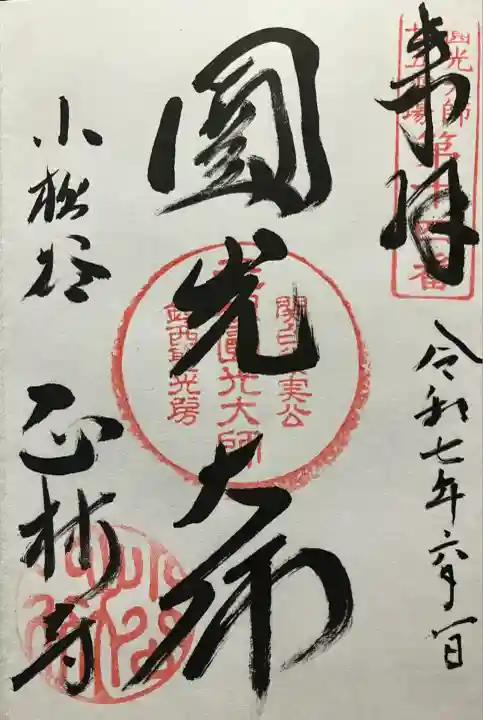 奉拝
圓光大師
廿五霊場
第十四番
令和七年六月一日
圓光大師
関白兼実公
圓光大師
鎮西聖光房
小松谷
正林寺